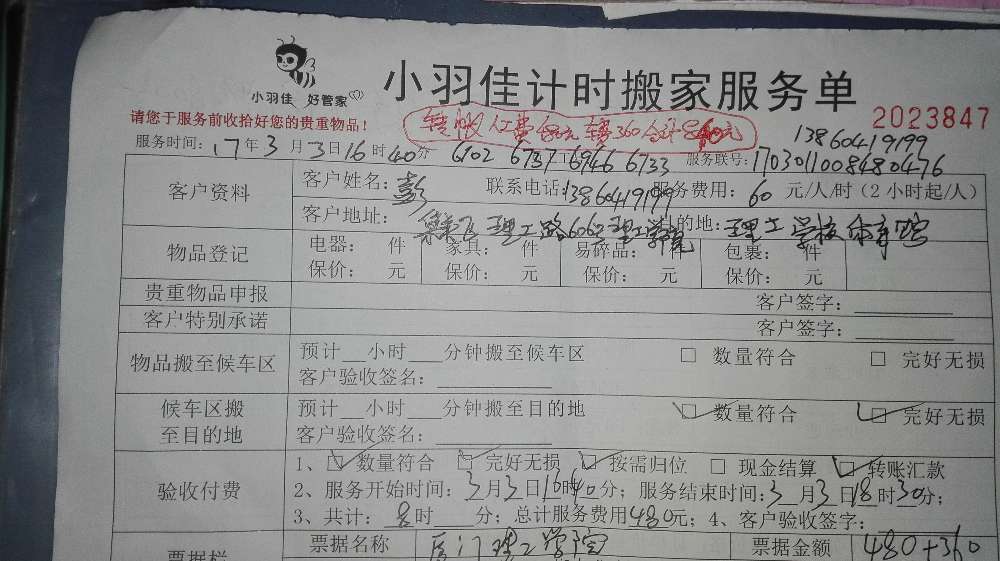 小羽佳 好管家
小羽佳计时搬家服务单
请您于服务前收拾好您的贵重物品！
转账 人工费480元 车费360 合计840元
2023847
13860419199
服务时间：17年3月3日16时40分 6102 6737 6946 6733 服务联号：1703011008480476
客户资料
客户姓名：彭 联系电话：13860419199 服务费用：60 元/人/时（2小时起/人）
客户地址： 集美区理工路 理工学院 目的地：理工学校体育馆
物品登记
电器： 件 家具： 件 易碎品： 件 包裹： 件
保价： 元 保价： 元 保价： 元 保价： 元
贵重物品申报 客户签字：
客户特别承诺 客户签字：
物品搬至候车区
预计__小时___分钟搬至候车区 □ 数量符合 □ 完好无损
客户验收签名：
候车区搬至目的地
预计__小时___分钟搬至目的地 ☑ 数量符合 ☑ 完好无损
客户验收签名：
验收付费
1、☑ 数量符合 ☑ 完好无损 ☑ 按需归位 □ 现金结算 ☑ 转账汇款
2、服务开始时间：3月3日16时40分；服务结束时间：3月3日18时30分；
3、共计：8时___分；总计服务费用480元；4、客户验收签字：
票据栏
票据名称 厦门理工学院 票据金额 480+360